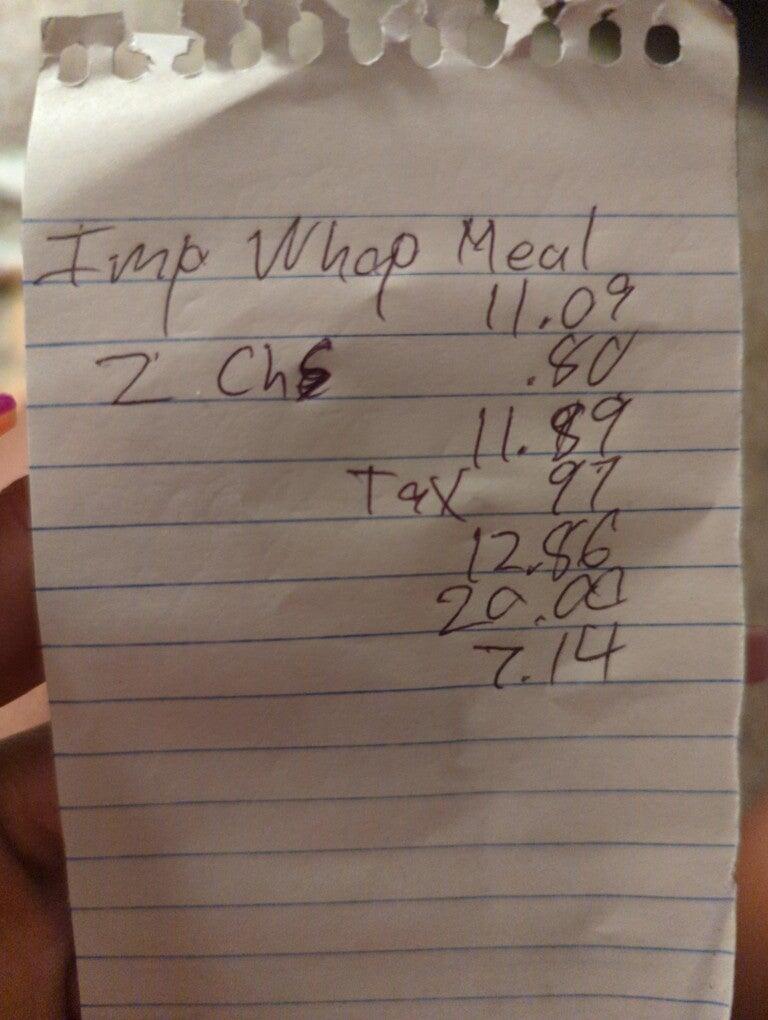 Imp Whop Meal
11.09
2 Chs .80
11.89
Tax 97
12.86
20.00
7.14